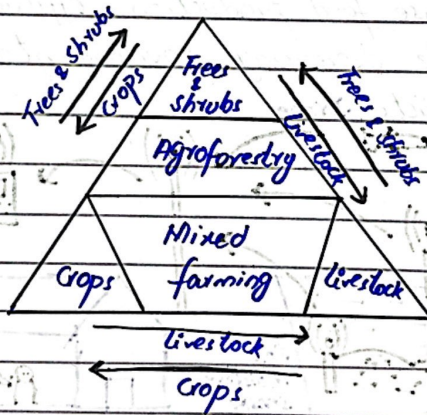 Trees & shrubs
Crops
Trees
&
shrubs
Livestock
Trees & shrubs
Agroforestry
Mixed
farming
Crops
livestock
livestock
Crops